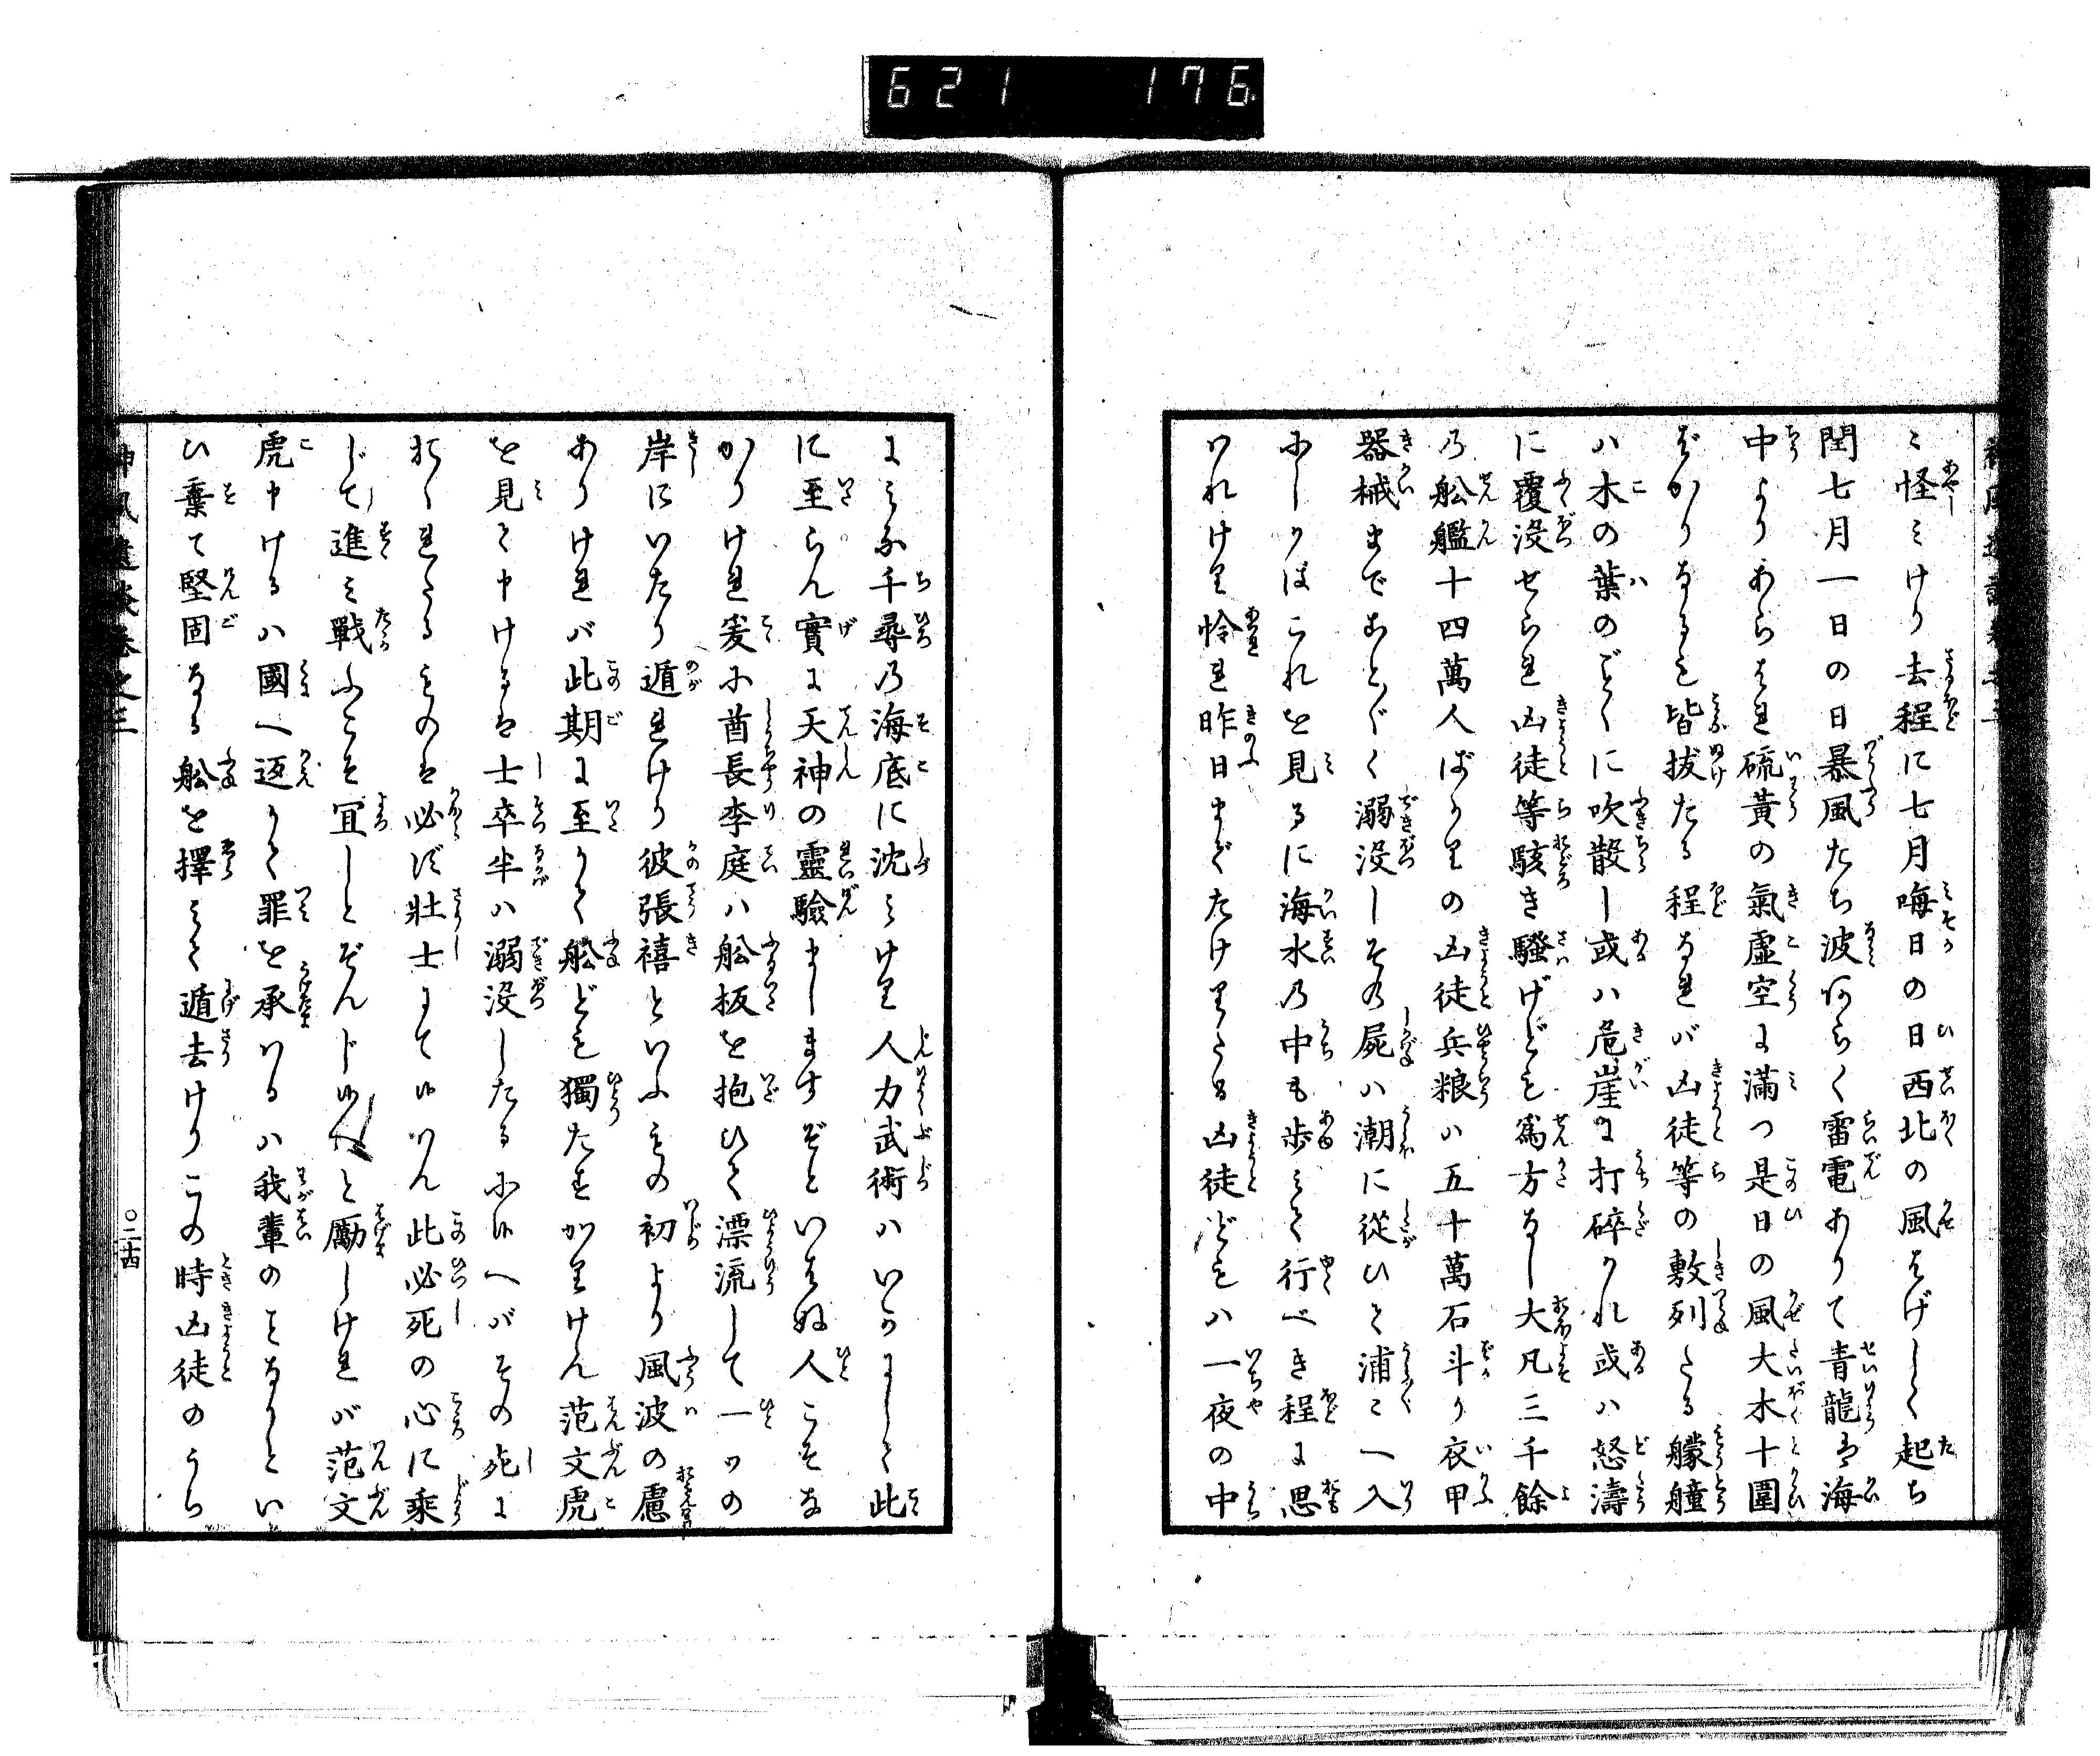 621 176
ミ怪ミけり去程に七月晦日の日西北の風はげしく起ち
閏七月一日の日暴風たち波あらく雷電ありて青龍は海
中よりあらはれ硫黄の氣虚空に満つ是日の風大木十圍
ばかりなるも皆抜たる程なれバ凶徒等の敷列たる艨艟
ハ木の葉のごとくに吹散し或ハ危崖に打碎かれ或ハ怒濤
に覆没せられ凶徒等駭き騒げども為方なし大凡三千餘
乃舩艦十四萬人ばかりの凶徒兵粮ハ五十萬石斗り衣甲
器械までこと〴〵く溺没しその屍ハ潮に從ひて浦ミへ入
にしかはこれを見るに海水乃中も歩ミて行べき程に思
はれけり怜れ昨日までたけりたる凶徒どもハ一夜の中
にみな千尋乃海底に沈みけり人力武術ハいかにして此
に至らん實に天神の靈驗ましますぞといはぬ人こそな
かりけれ爰に酋長李庭ハ舩板を抱ひて漂流して一ツの
岸にいたり遁れけり彼張禧といふもの初より風波の慮
ありけれバ此期に至りて舩ども獨たすかりけん范文虎
を見て申けるは士卒半ハ溺没したるに候へバその死に
おくれたるものは必ず壮士にて候はん此必死の心に乘
じて進み戰ふこそ宜しとぞんじ候へと勵しけれバ范文
虎申けるハ國へ迯りて罪を承けるハ我輩のことなりとい
ひ棄て堅固なる舩を擇みて遁去けりこの時凶徒のうち
神風遺談巻之三
〇二十四